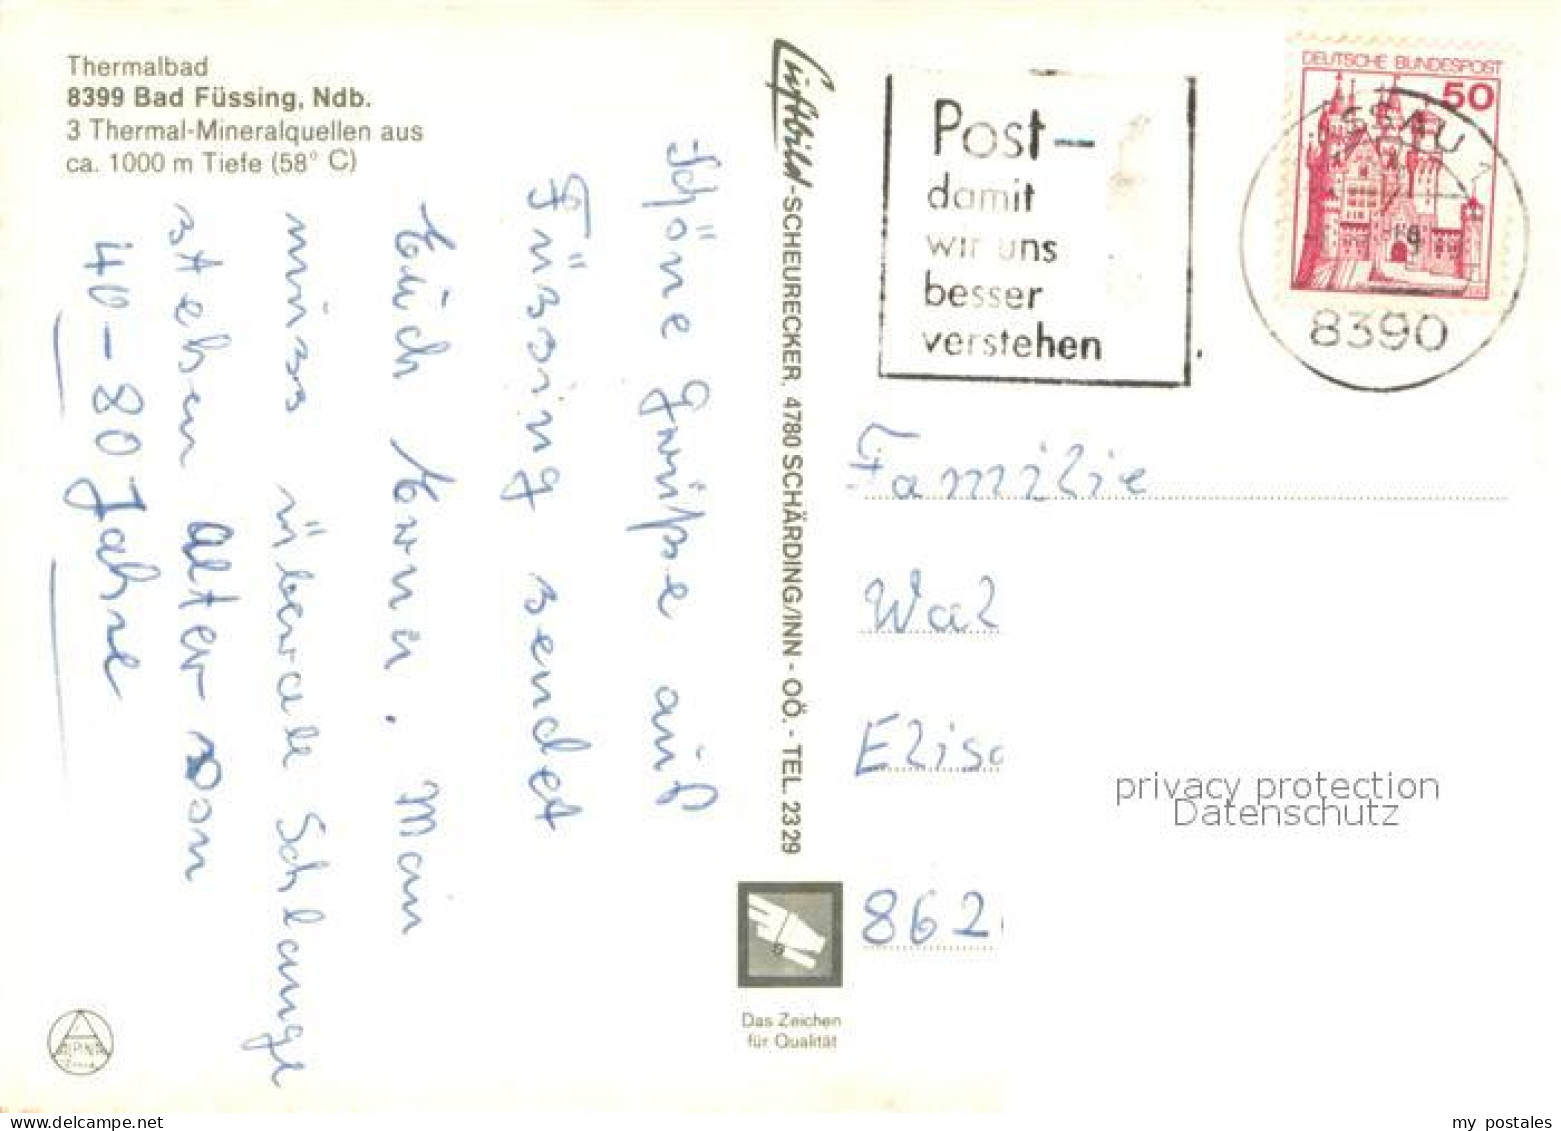 Thermalbad
8399 Bad Füssing, Ndb.
3 Thermal-Mineralquellen aus
ca. 1000 m Tiefe (58° C)
Schöne Grüße aus
Füssing sendet
Euch Erna. Man
muss überall Schlange
stehen Alter von
40-80 Jahre
Luftbild-SCHEURECKER, 4780 SCHÄRDING/INN - OÖ. - TEL. 2329
Das Zeichen
für Qualität
ALPINA
Post-
damit
wir uns
besser
verstehen
DEUTSCHE BUNDESPOST
50
ASSAU
8390
Familie
Wal
Elisa
862
privacy protection
Datenschutz
my postales